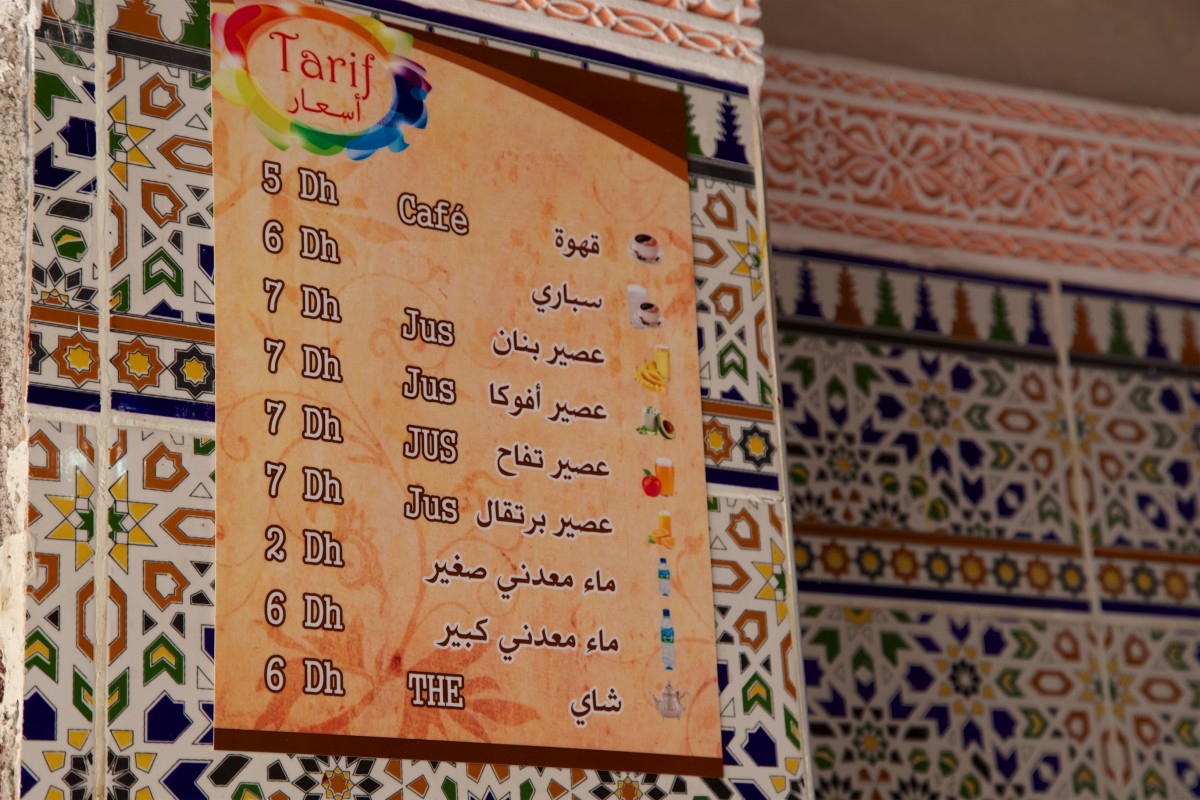 Tarif
أسعار
5 Dh Café قهوة
6 Dh سباري
7 Dh Jus عصير بنان
7 Dh Jus عصير أفوكا
7 Dh JUS عصير تفاح
7 Dh Jus عصير برتقال
2 Dh ماء معدني صغير
6 Dh ماء معدني كبير
6 Dh THE شاي